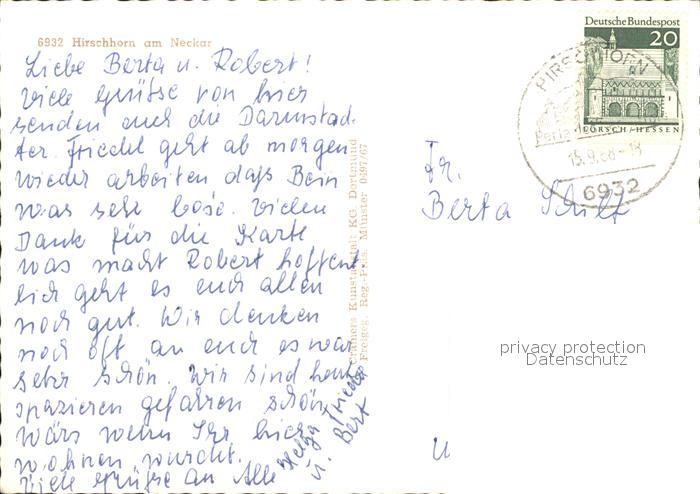 6932 Hirschhorn am Neckar
Liebe Berta u. Robert!
Viele Grüsse von hier
senden euch die Darmstäd-
ter. Friedel geht ab morgen
wieder arbeiten daß Bein
war sehr böse. Vielen
Dank für die Karte
was macht Robert hoffent
lich geht es euch allen
noch gut. Wir denken
noch oft an euch es war
sehr schön. Wir sind heut
spazieren gefahren schön
wärs wenn Ihr hier
wohnen würdet.
Viele Grüsse an Alle
Helga Friedel
u. Bert
Krainers Kunstanstalt KG Dortmund
Freigeg. Reg.-Präs. Münster 0497/67
Deutsche Bundespost
20
LORSCH/HESSEN
HIRSCHHORN
15.9.68-18
6932
Fr.
Berta Schilt
privacy protection
Datenschutz